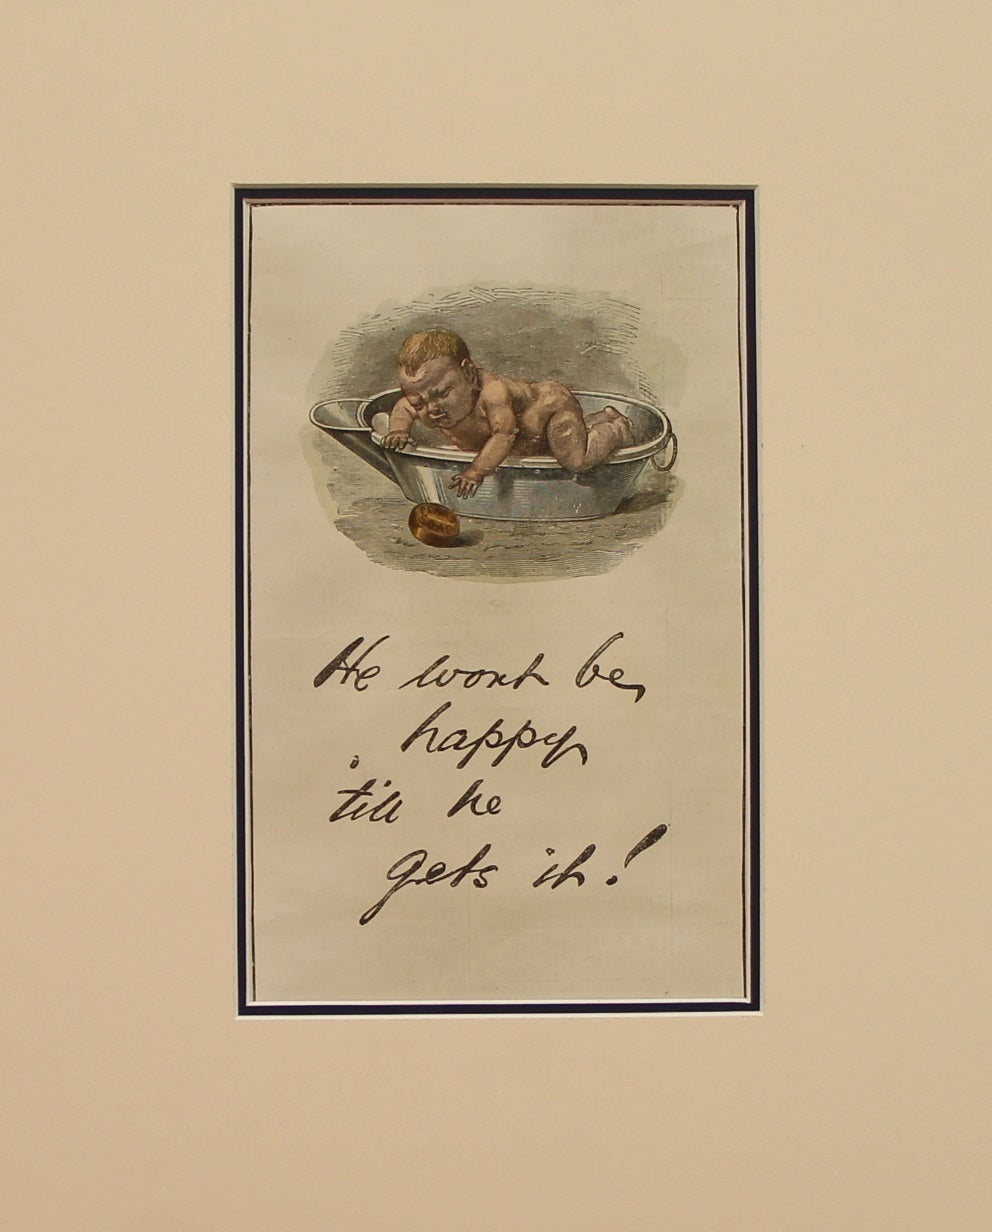 PEARS
SOAP
He wont be
happy
'till he
gets it!